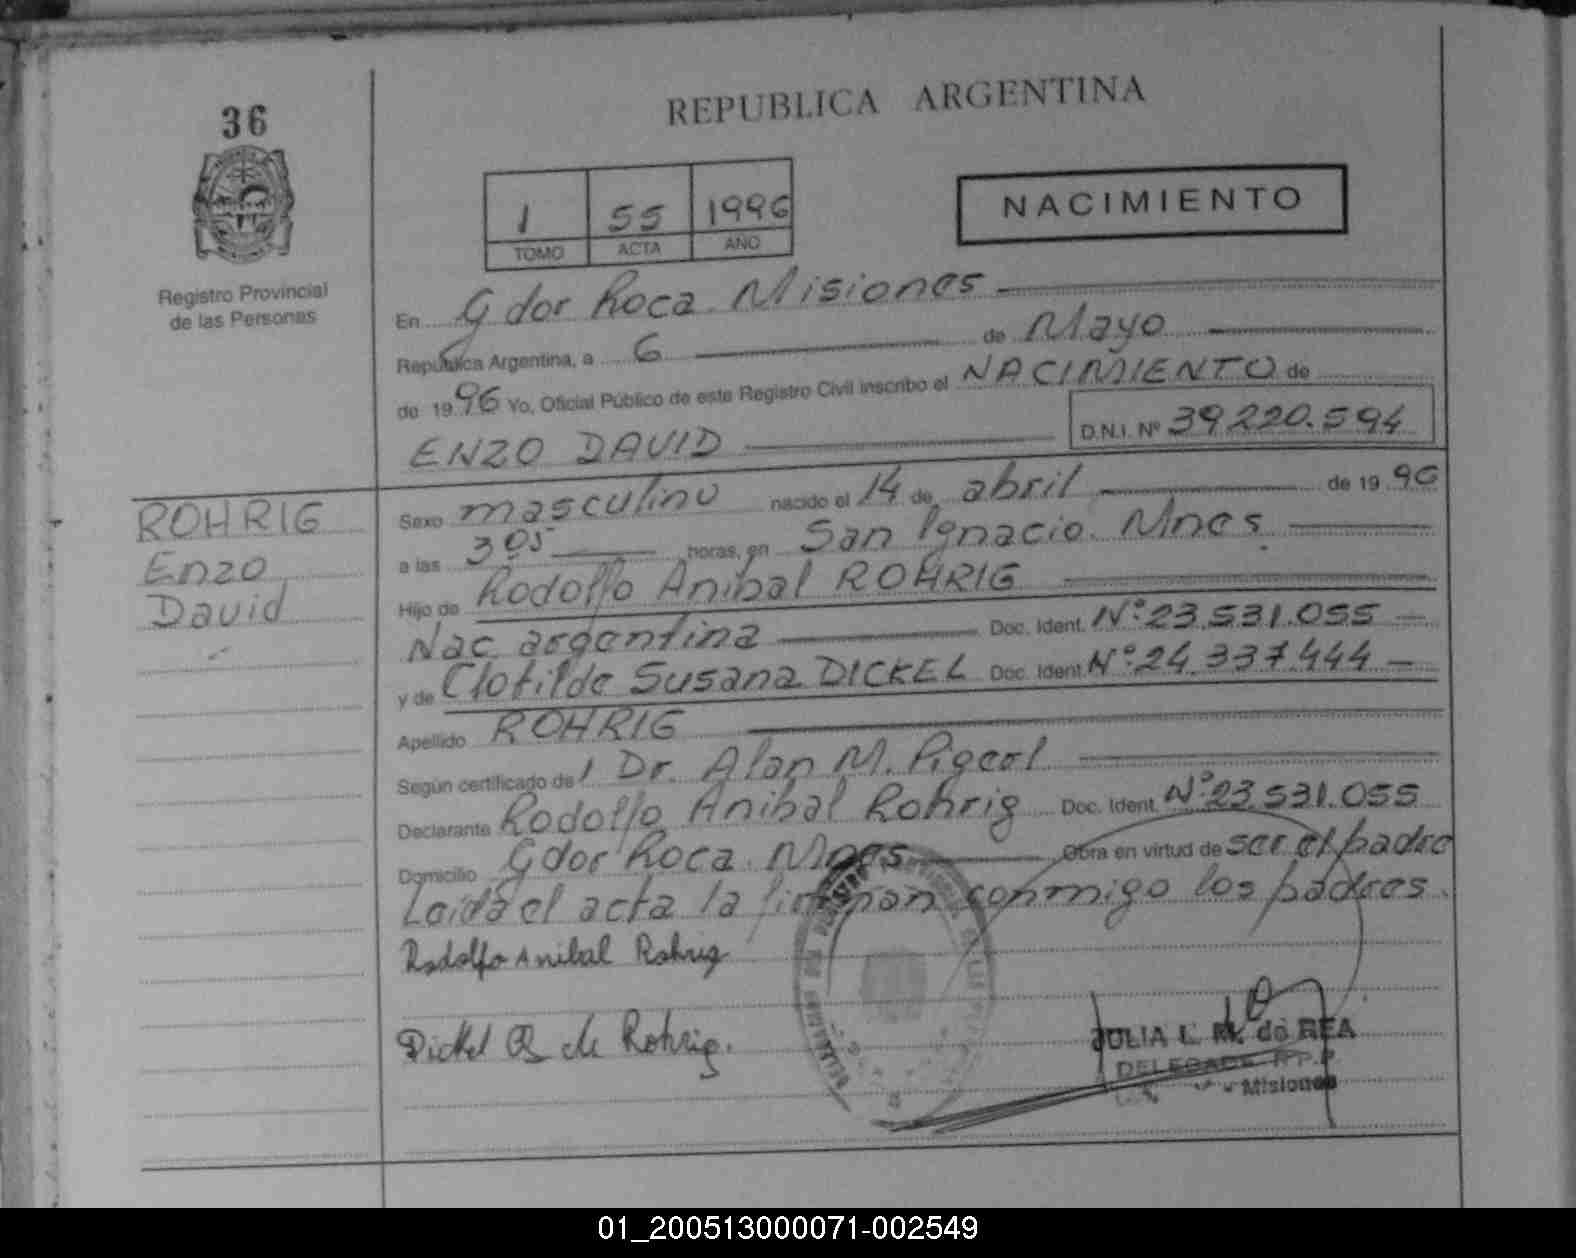 36
REPUBLICA ARGENTINA
1 55 1996
TOMO ACTA AÑO
NACIMIENTO
Registro Provincial
de las Personas
En Gdor Roca. Misiones
República Argentina, a 6 de Mayo
de 1996 Yo, Oficial Público de este Registro Civil inscribo el NACIMIENTO de
ENZO DAVID D.N.I. Nº 39.220.594
ROHRIG
Enzo
David
Sexo masculino nacido el 14 de abril de 1996
a las 305 horas, en San Ignacio. Mnes
Hijo de Rodolfo Anibal ROHRIG
Nac argentina Doc. Ident. Nº 23.531.055
y de Clotilde Susana DICKEL Doc. Ident. Nº 24.337.444
Apellido ROHRIG
Según certificado de Dr. Alan M.
Declarante Rodolfo Anibal Rohrig Doc. Ident. Nº 23.531.055
Domicilio Gdor Roca. Mnes Obra en virtud de ser el padre
Leida el acta la firman conmigo los padres.
Rodolfo Anibal Rohrig
Dickel de Rohrig.
JULIA L. M. de REA
DELEGADA R.P.P.
Misiones
01_200513000071-002549